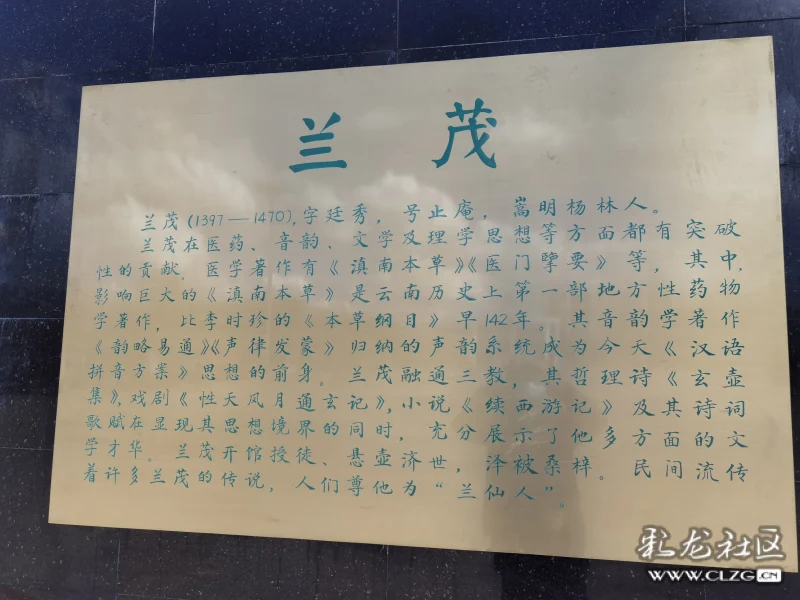 兰茂
兰茂(1397—1470),字廷秀,号止庵,嵩明杨林人。
兰茂在医药、音韵、文学及理学思想等方面都有突破
性的贡献.医学著作有《滇南本草》《医门擥要》等,其中,
影响巨大的《滇南本草》是云南历史上第一部地方性药物
学著作,比李时珍的《本草纲目》早142年。其音韵学著作
《韵略易通》《声律发蒙》归纳的声韵系统成为今天《汉语
拼音方案》思想的前身。兰茂融通三教,其哲理诗《玄壶
集》,戏剧《性天风月通玄记》,小说《续西游记》及其诗词
歌赋在显现其思想境界的同时,充分展示了他多方面的文
学才华。兰茂开馆授徒、悬壶济世,泽被桑梓。民间流传
着许多兰茂的传说,人们尊他为“兰仙人”。
彩龙社区
WWW.CLZG.CN